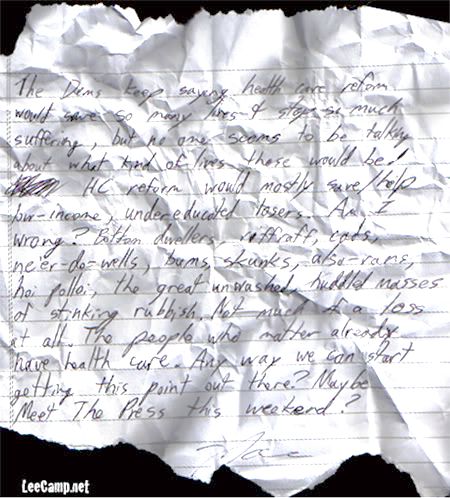 The Dems keep saying health care reform
would save so many lives & stop so much
suffering, but no one seems to be talking
about what kind of lives these would be!
HC reform would mostly save/help
low-income, undereducated losers. Am I
wrong? Bottom dwellers, riffraff, cads,
ne'er-do-wells, bums, skunks, also-rans,
hoi polloi, the great unwashed, huddled masses
of stinking rubbish. Not much of a loss
at all. The people who matter already
have health care. Any way we can start
getting this point out there? Maybe
Meet The Press this weekend?
LeeCamp.net